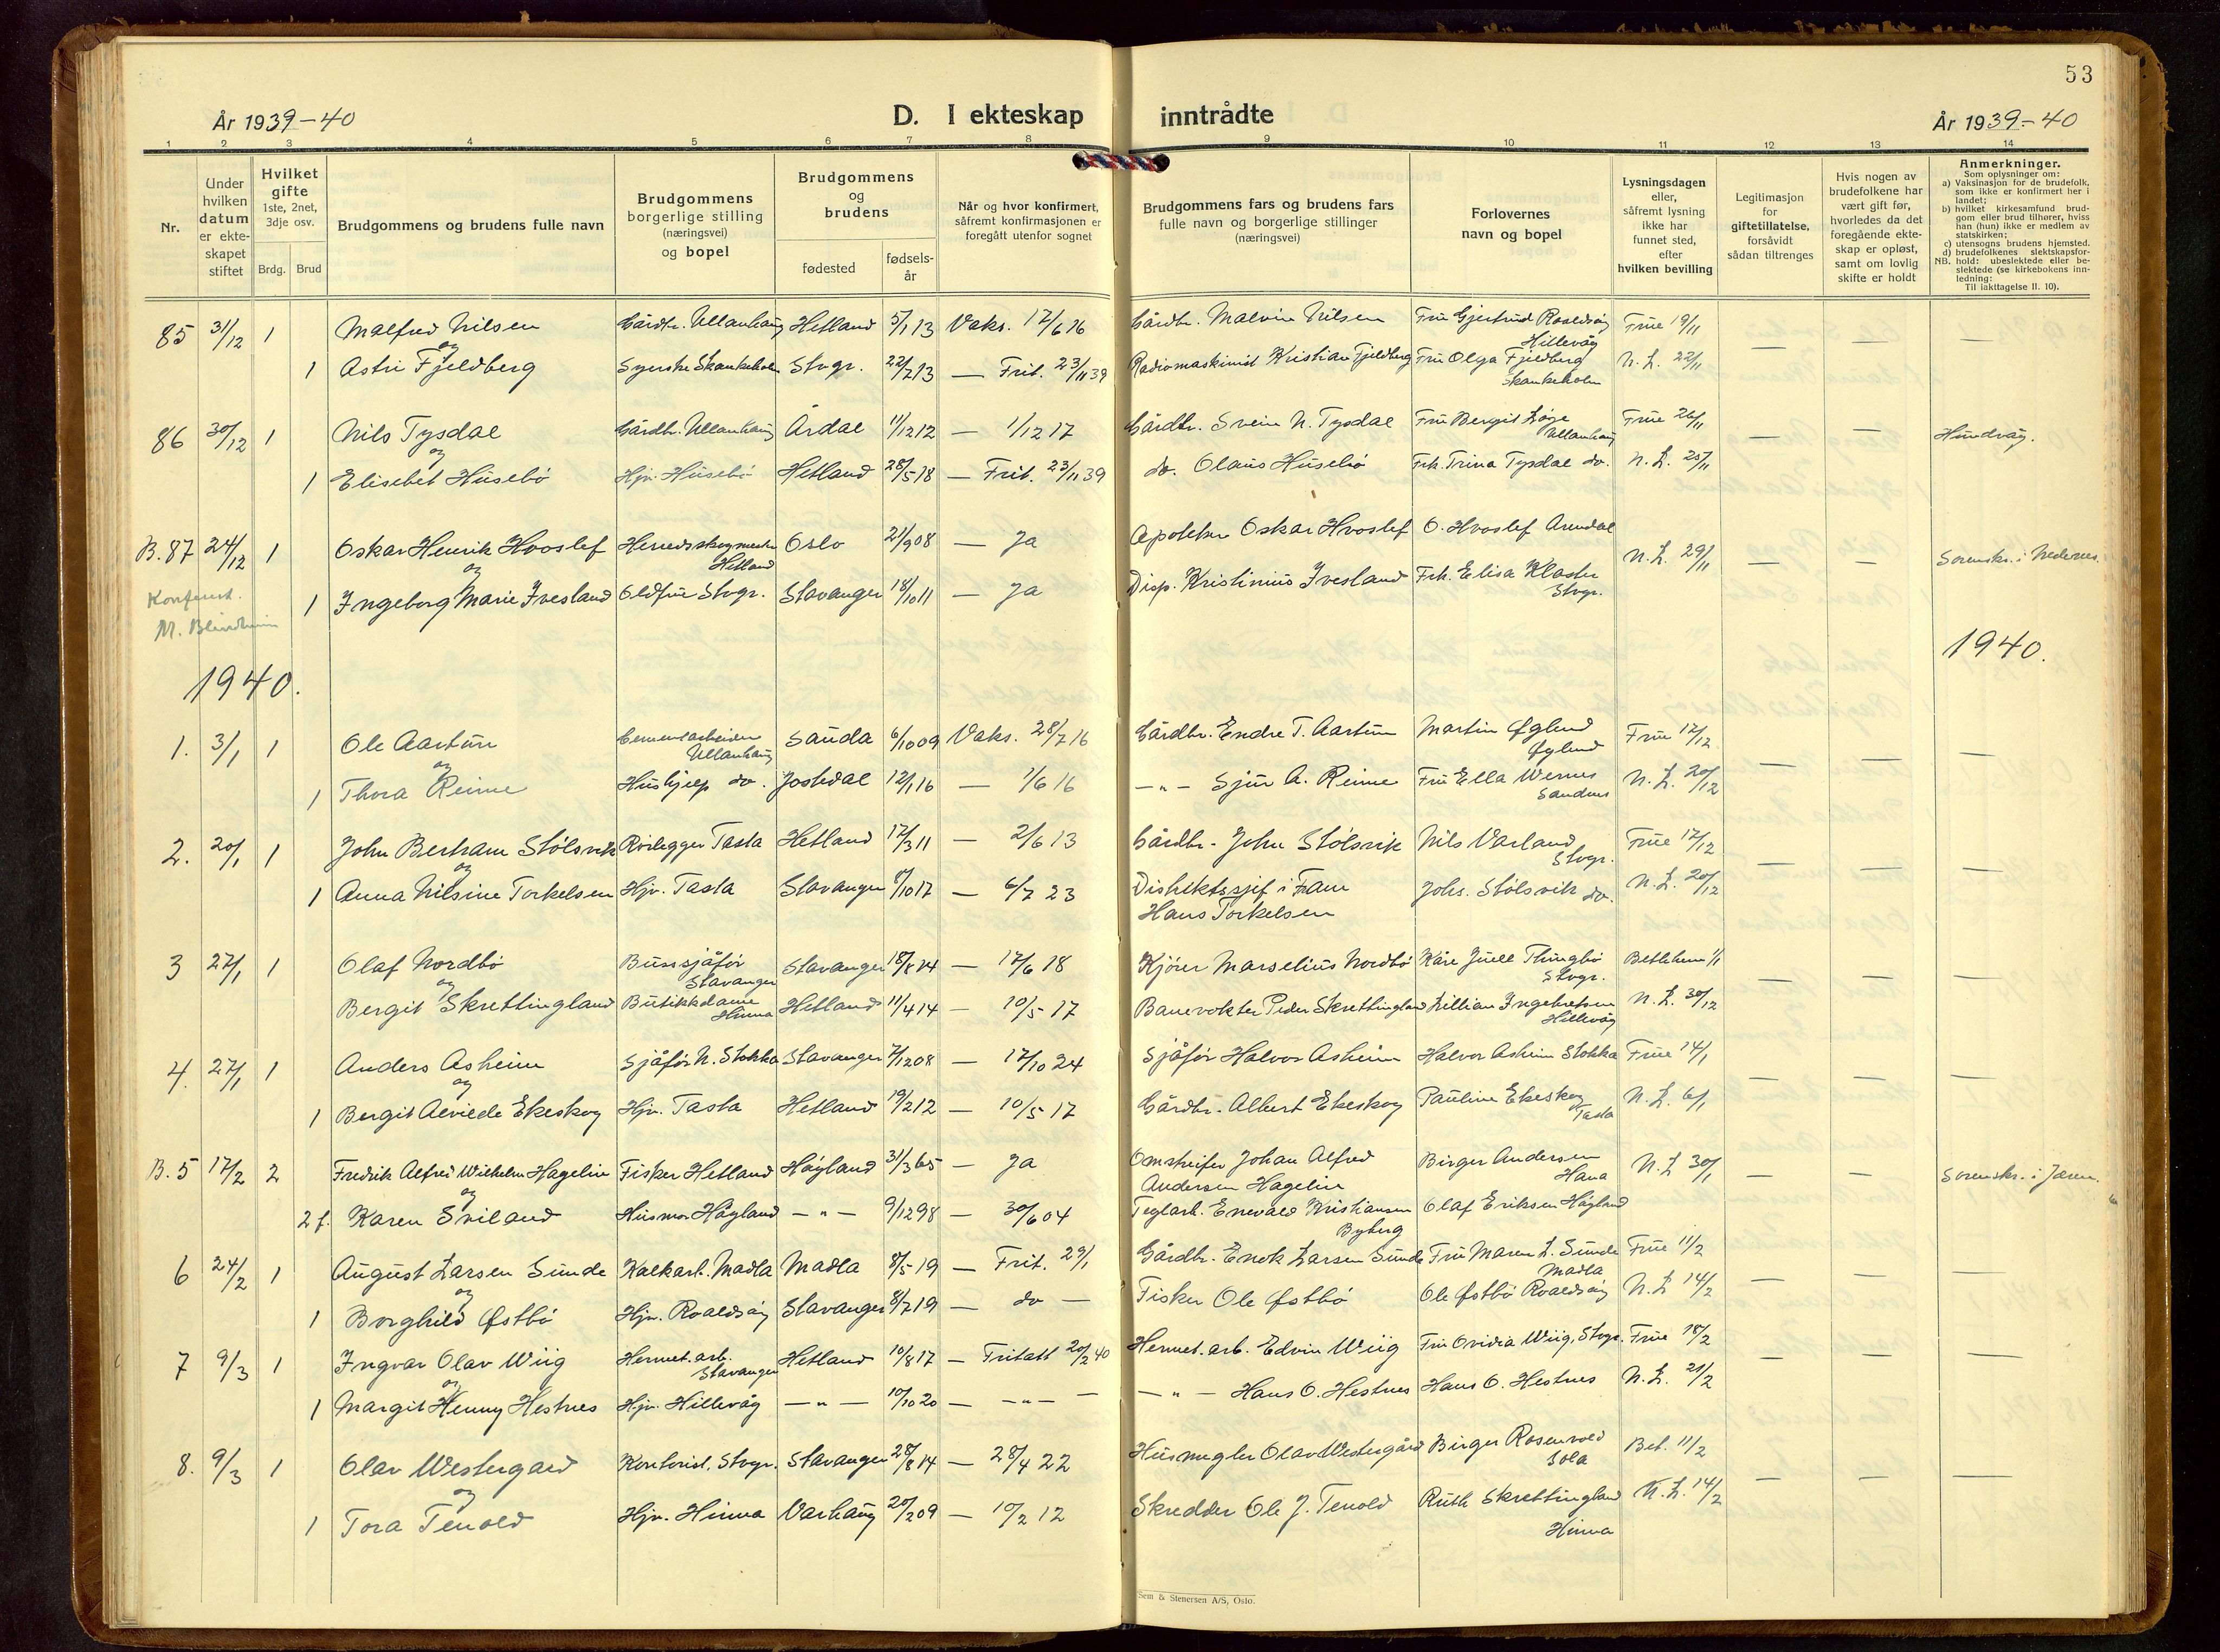 53
År 1939-40
D. I ekteskap
inntrådte
År 1939-40
1 2 3 4 5 6 7 8 9 10 11 12 13 14
Nr.
Under
hvilken
datum
er ekte-
skapet
stiftet
Hvilket
gifte
1ste, 2net,
3dje osv.
Brdg. Brud
Brudgommens og brudens fulle navn
Brudgommens
borgerlige stilling
(næringsvei)
og bopel
Brudgommens
og
brudens
fødested
fødsels-
år
Når og hvor konfirmert,
såfremt konfirmasjonen er
foregått utenfor sognet
Brudgommens fars og brudens fars
fulle navn og borgerlige stillinger
(næringsvei)
Forlovernes
navn og bopel
Lysningsdagen
eller,
såfremt lysning
ikke har
funnet sted,
efter
hvilken bevilling
Legitimasjon
for
giftetillatelse,
forsåvidt
sådan tiltrenges
Hvis nogen av
brudefolkene har
vært gift før,
hvorledes da det
foregående ekte-
skap er opløst,
samt om lovlig
skifte er holdt
Anmerkninger.
Som oplysninger om:
a) Vaksinasjon for de brudefolk,
som ikke er konfirmert her i
landet;
b) hvilket kirkesamfund brud-
gom eller brud tilhører, hviss
han (hun) ikke er medlem av
statskirken;
c) utensogns brudens hjemsted.
d) brudefolkenes slektskapsfor-
NB. hold: ubeslektede eller be-
slektede (se kirkebokens inn-
ledning:
Til iakttagelse II. 10).
85 31/12 1 Malfred Nilsen Gårdbr. Ullanhaug Hetland 5/1 13 Vaks. 17/6 16 Gårdbr. Malvin Nilsen Fru Gjertrud Roaldsøy Hillevåg Frue 19/11 — — —
og
1 Astri Fjeldberg Syerske Skankeholm Stvgr. 22/2 13 — Frit. 23/11 39 Radiomaskinist Kristian Fjeldberg Fru Olga Fjeldberg Skankeholm N. L. 22/11
86 30/12 1 Nils Tysdal Gårdbr. Ullanhaug Årdal 11/12 12 — 1/12 17 Gårdbr. Svein N. Tysdal Fru Bergit Løge Ullanhaug Frue 26/11 — — Hundvåg.
og
1 Elisebet Husebø Hjv. Husebø Hetland 28/5 18 — Frit. 23/11 39 do. Olaus Husebø Frk. Trina Tysdal do. N. L. 25/11
B. 87 24/12 1 Oskar Henrik Hvoslef Herredsskogmester Hetland Oslo 21/9 08 — Ja Apoteker Oskar Hvoslef O. Hvoslef Arendal N. L. 29/11 — — Sorenskr. i Nedenes.
og
Konferert.
M. Blindheim
1 Ingeborg Marie Ivesland Oldfrue Stvgr. Stavanger 18/10 11 — Ja Disp. Kristinius Ivesland Frk. Elisa Kloster Stvgr.
1940.
1940.
1. 3/1 1 Ole Aartun Cementarbeider Ullanhaug Sauda 6/10 09 Vaks. 28/7 16 Gårdbr. Endre T. Aartun Martin Øglend Øglend Frue 17/12 — — —
og
1 Thora Reime Hushjelp do. Jostedal 12/1 16 — 1/6 16 —"— Sjur A. Reime Fru Ella Wernes Sandnes N. L. 20/12
2. 20/1 1 John Bertram Stølsvik Rørlegger Tasta Hetland 17/3 11 — 2/6 13 Gårdbr. John Stølsvik Nils Varland Stvgr. Frue 17/12 — — —
og
1 Anna Nilsine Torkelsen Hjv. Tasta Stavanger 8/10 17 — 6/7 23 Distriktssjef i Fram Johs. Stølsvik do. N. L. 20/12
Hans Torkelsen
3 27/1 1 Olaf Nordbø Bussjåfør Stavanger Stavanger 18/8 14 — 17/6 18 Kjører Marselius Nordbø Kåre Juell Thingbø Stvgr. Betlehem 1/1 — — —
og
Bergit Skrettingland Butikkdame Hinna Hetland 11/4 14 — 10/5 17 Banevokter Peder Skrettingland Lillian Ingebretsen Hillevåg N. L. 30/12
4. 27/1 1 Anders Asheim Sjåfør N. Stokka Stavanger 7/12 08 — 17/10 24 Sjåfør Halvor Asheim Halvor Asheim Stokka Frue 14/1 — — —
og
1 Bergit Alvilde Ekeskog Hjv. Tasta Hetland 19/2 12 — 10/5 17 Gårdbr. Albert Ekeskog Pauline Ekeskog Tasta N. L. 6/1
B. 5 17/2 2 Fredrik Alfred Wilhelm Hagelin Fisker Hetland Høyland 31/3 65 — Ja Omstreifer Johan Alfred Andersen Hagelin Birger Andersen Hana N. L. 30/1 — — Sorenskr. i Jæren.
og
2 f. Karen Sviland Husmor Høyland —"— 9/12 98 — 30/6 04 Teglarb. Enevald Kristiansen Byberg Olaf Eriksen Høyland
6 24/2 1 August Larsen Sunde Kalkarb. Madla Madla 8/5 19 — Frit. 29/1 Gårdbr. Enok Larsen Sunde Fru Maren L. Sunde Madla Frue 11/2 — — —
og
1 Borghild Østbø Hjv. Roaldsøy Stavanger 8/7 19 — do — Fisker Ole Østbø Ole Østbø Roaldsøy N. L. 14/2
7 9/3 1 Ingvar Olav Wiig Hermet. arb. Stavanger Hetland 10/8 17 — Fritatt 20/2 40 Hermet. arb. Edvin Wiig Fru Ovidia Wiig, Stvgr. Frue 18/2 — — —
og
1 Margit Henny Hestnes Hjv. Hillevåg —"— 10/10 20 — —"— — —"— Hans O. Hestnes Hans O. Hestnes N. L. 21/2
8. 9/3 1 Olav Westergård Kontorist, Stvgr. Stavanger 28/8 14 — 28/4 22 Husmegler Olav Westergård Birger Rosenvold Sola Bet. 11/2 — — —
og
1 Tora Tenold Hjv. Hinna Varhaug 20/2 09 — 10/2 12 Skredder Ole J. Tenold Ruth Skrettingland Hinna N. L. 14/2
Sem & Stenersen A/S, Oslo.